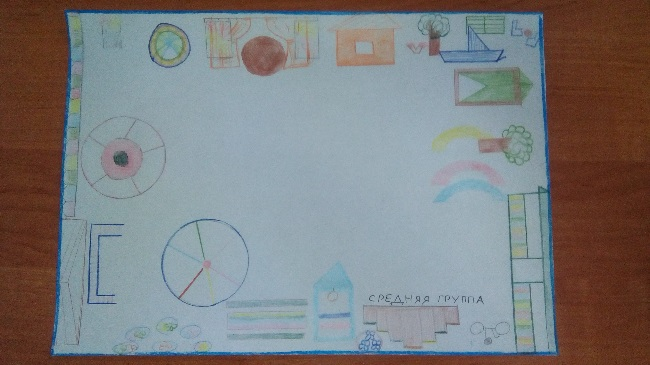 СРЕДНЯЯ ГРУППА